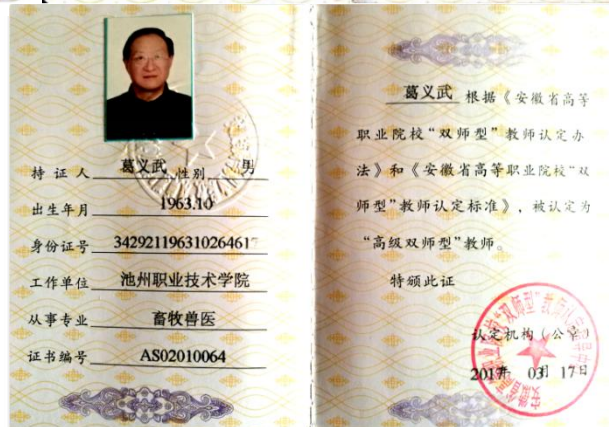 持 证 人 葛义武 性别 男
出生年月 1963.10
身份证号 342921196310264617
工作单位 池州职业技术学院
从事专业 畜牧兽医
证书编号 AS02010064
葛义武 根据《安徽省高等
职业院校“双师型”教师认定办
法》和《安徽省高等职业院校“双
师型”教师认定标准》，被认定为
“高级双师型”教师。
特颁此证
认定机构（公章）
2017年 03月 17日